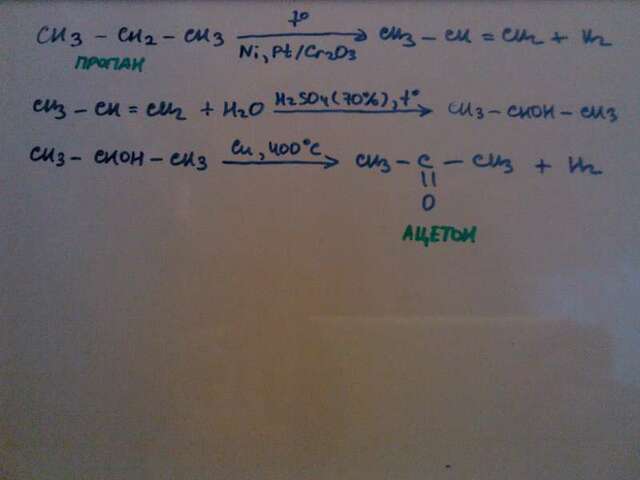 CH3 - CH2 - CH3 t° Ni, Pt/Cr2O3 CH3 - CH = CH2 + H2
ПРОПАН
CH3 - CH = CH2 + H2O H2SO4 (70%), t° CH3 - CHOH - CH3
CH3 - CHOH - CH3 Cu, 400°C CH3 - C - CH3 + H2
||
O
АЦЕТОН